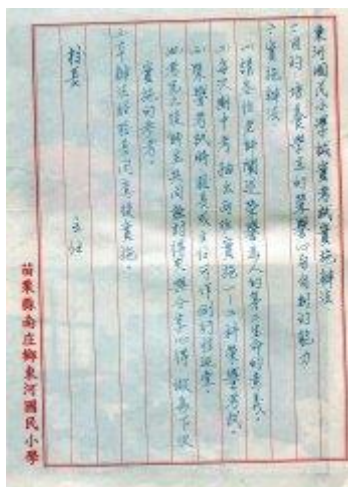 東河國民小學誠實考試實施辦法
一、目的:培養學生的榮譽心與自制的能力
二、實施辦法
㈠請各位老師闡述榮譽為人的第二生命的意義。
㈡每次期中考抽出兩班實施一~二科榮譽考試。
㈢榮譽考試時教員或主任只作例行性巡堂。
㈣考完之後師生共同檢討得失與分享心得,做為下次
實施的參考。
三、本辦法經校長同意後實施。
校長 主任
苗栗縣南庄鄉東河國民小學